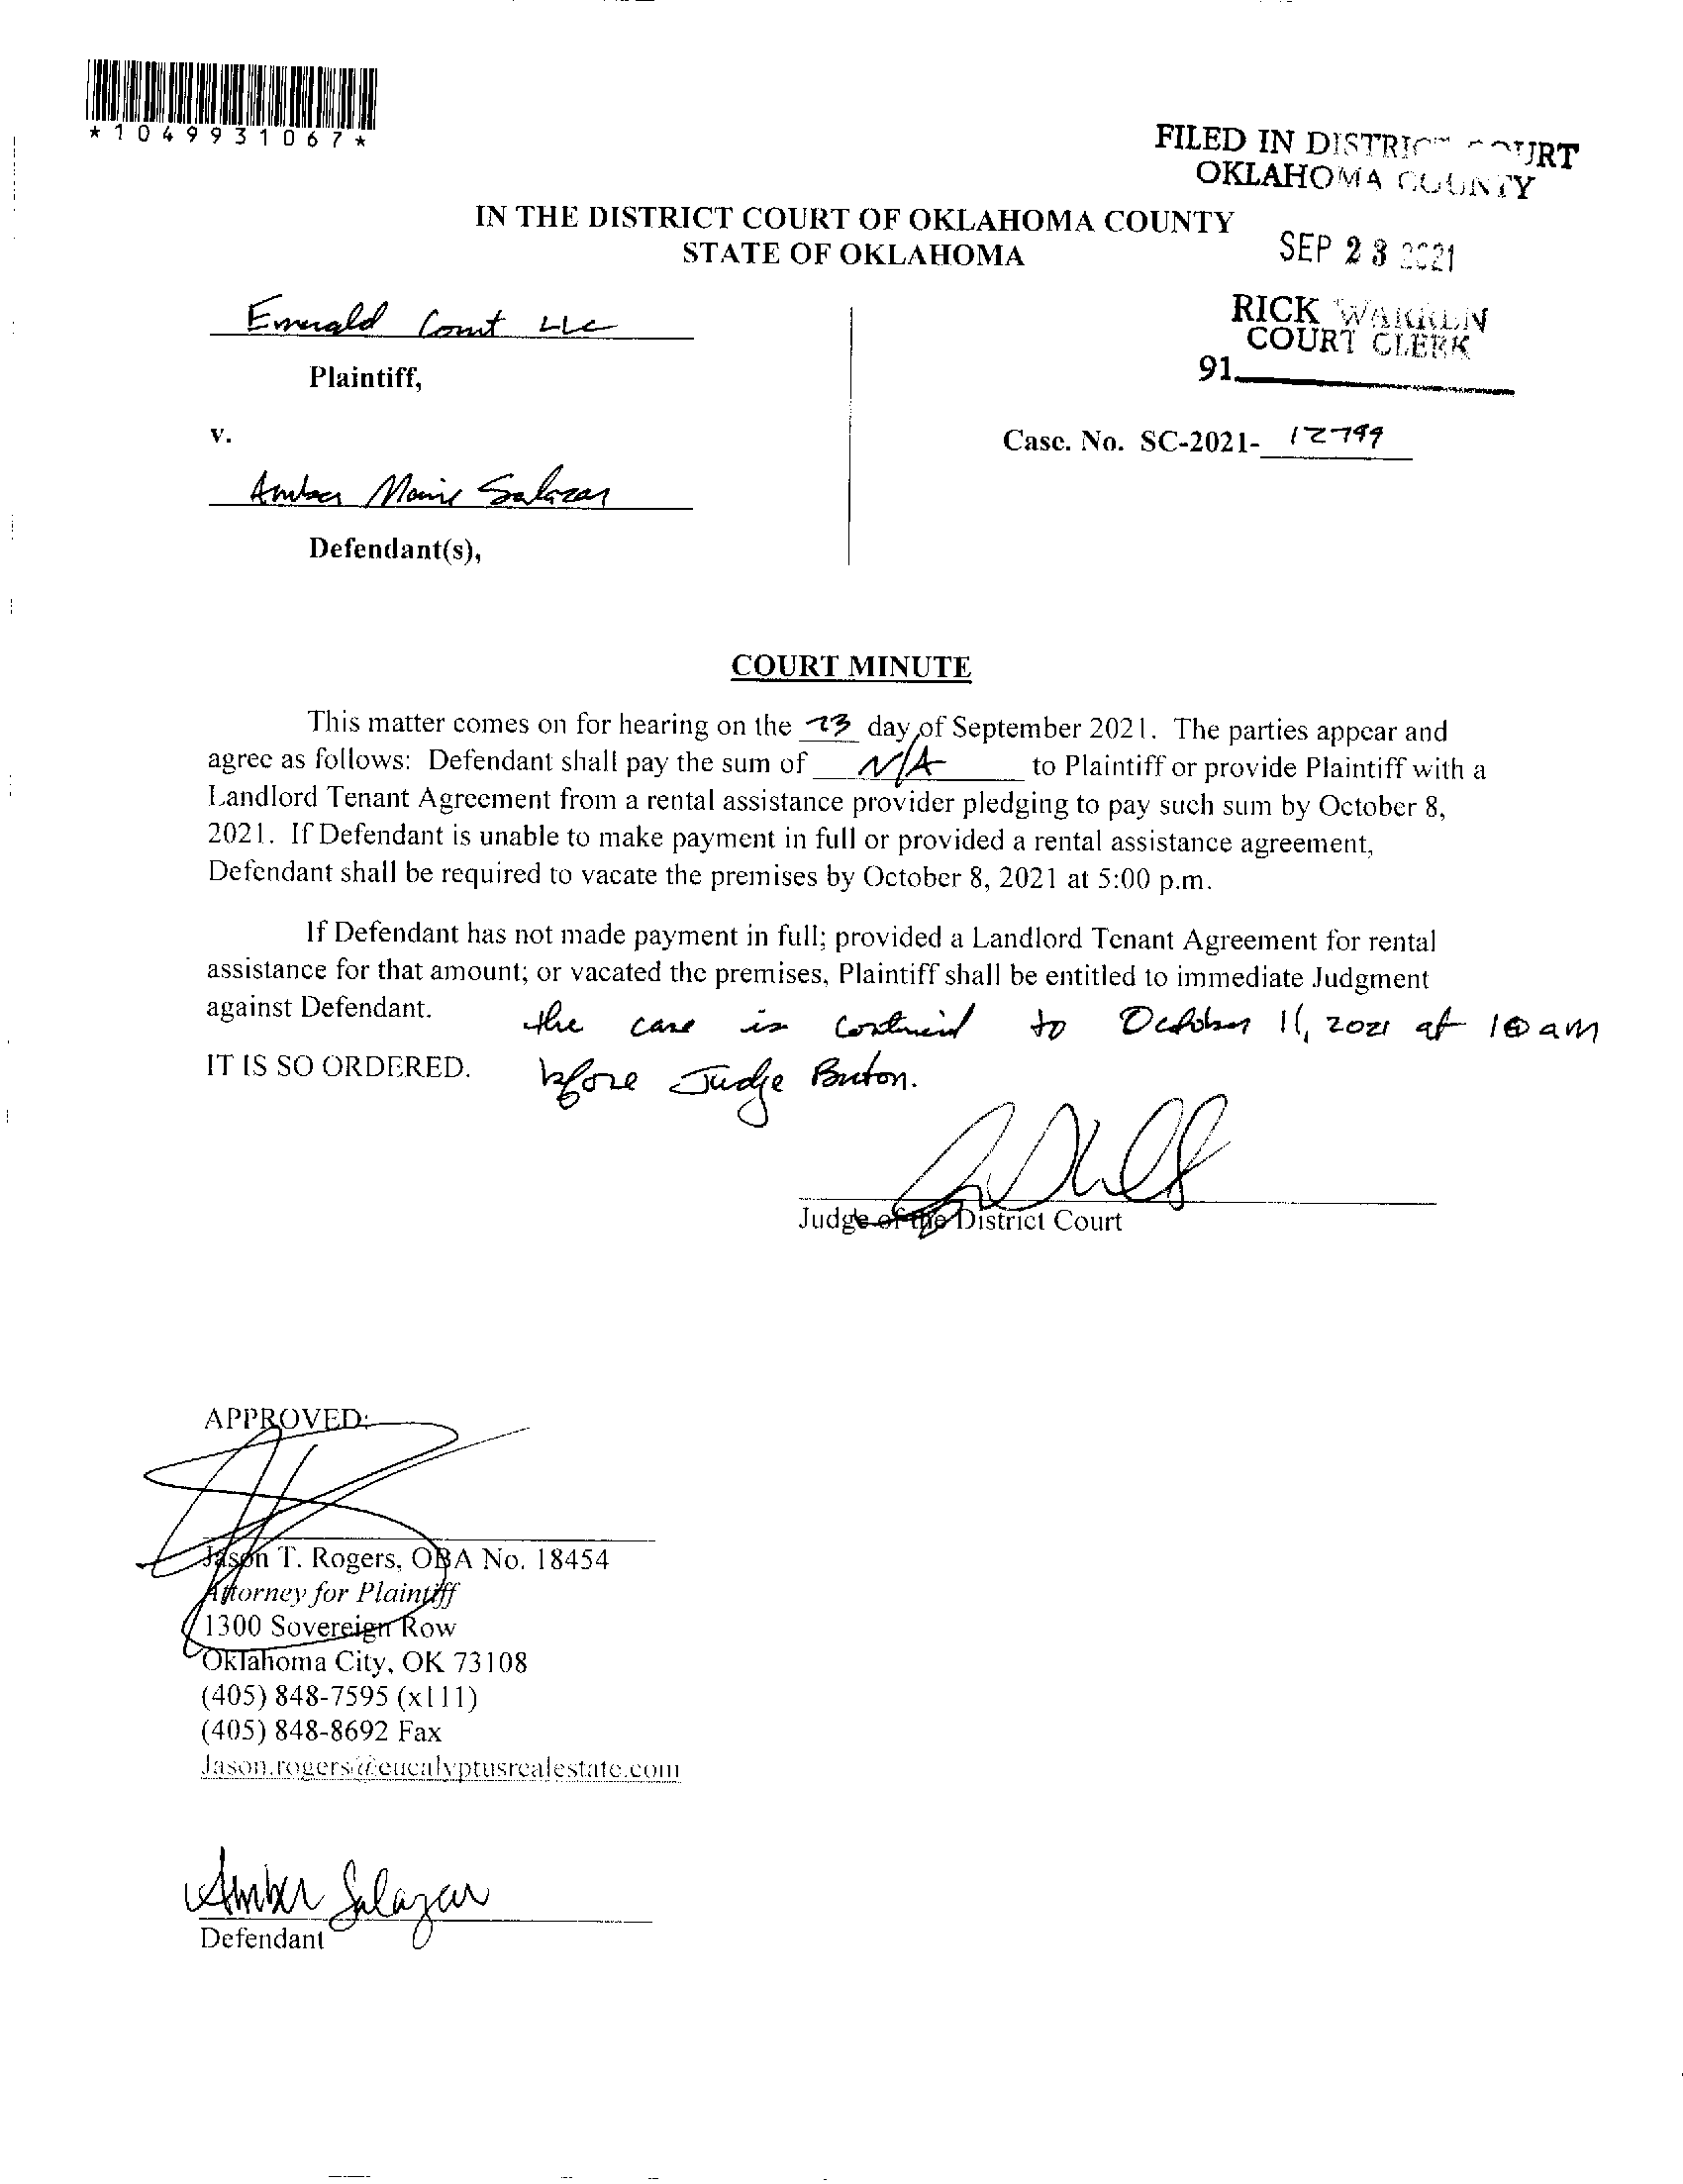 *1049931067*
FILED IN DISTRICT COURT
OKLAHOMA COUNTY
IN THE DISTRICT COURT OF OKLAHOMA COUNTY
STATE OF OKLAHOMA
SEP 23 2021
RICK WARREN
COURT CLERK
91
Emerald Court LLC
Plaintiff,
v.
Case. No. SC-2021- 12799
Amber Marie Salazar
Defendant(s),
COURT MINUTE
This matter comes on for hearing on the 23 day of September 2021. The parties appear and
agree as follows: Defendant shall pay the sum of N/A to Plaintiff or provide Plaintiff with a
Landlord Tenant Agreement from a rental assistance provider pledging to pay such sum by October 8,
2021. If Defendant is unable to make payment in full or provided a rental assistance agreement,
Defendant shall be required to vacate the premises by October 8, 2021 at 5:00 p.m.
If Defendant has not made payment in full; provided a Landlord Tenant Agreement for rental
assistance for that amount; or vacated the premises, Plaintiff shall be entitled to immediate Judgment
against Defendant.
the case is continued to October 11, 2021 at 10 am
IT IS SO ORDERED.
before Judge .
Judge of the District Court
APPROVED:
Jason T. Rogers, OBA No. 18454
Attorney for Plaintiff
1300 Sovereign Row
Oklahoma City, OK 73108
(405) 848-7595 (x111)
(405) 848-8692 Fax
Jason.rogers@eucalyptusrealestate.com
Amber Salazar
Defendant